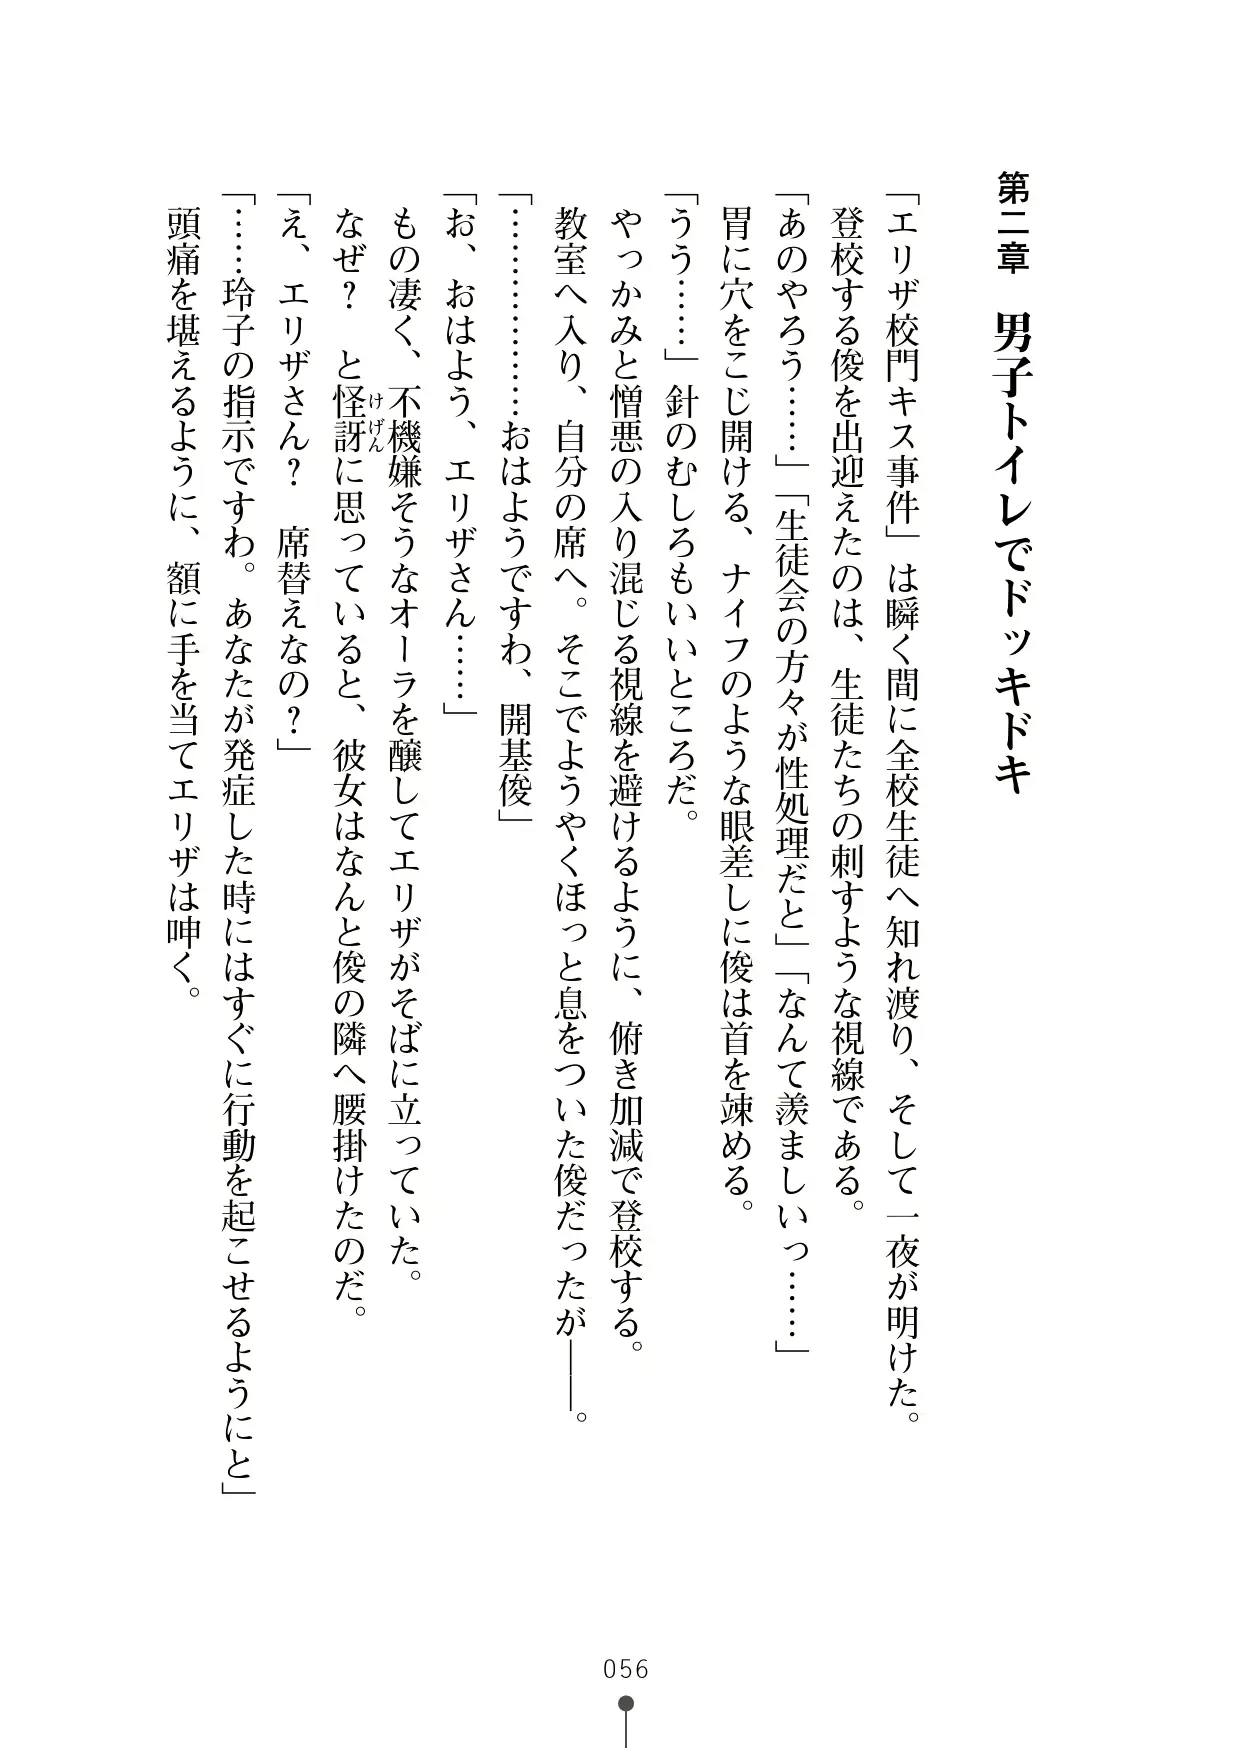 第二章　男子トイレでドッキドキ
「エリザ校門キス事件」は瞬く間に全校生徒へ知れ渡り、そして一夜が明けた。
登校する俊を出迎えたのは、生徒たちの刺すような視線である。
「あのやろう……」「生徒会の方々が性処理だと」「なんて羨ましいっ……」
胃に穴をこじ開ける、ナイフのような眼差しに俊は首を竦める。
「うう……」針のむしろもいいところだ。
やっかみと憎悪の入り混じる視線を避けるように、俯き加減で登校する。
教室へ入り、自分の席へ。そこでようやくほっと息をついた俊だったが――。
「………………おはようですわ、開基俊」
「お、おはよう、エリザさん……」
もの凄く、不機嫌そうなオーラを醸してエリザがそばに立っていた。
なぜ？　と怪訝に思っていると、彼女はなんと俊の隣へ腰掛けたのだ。
けげん
「え、エリザさん？　席替えなの？」
「……玲子の指示ですわ。あなたが発症した時にはすぐに行動を起こせるようにと」
頭痛を堪えるように、額に手を当てエリザは呻く。
056